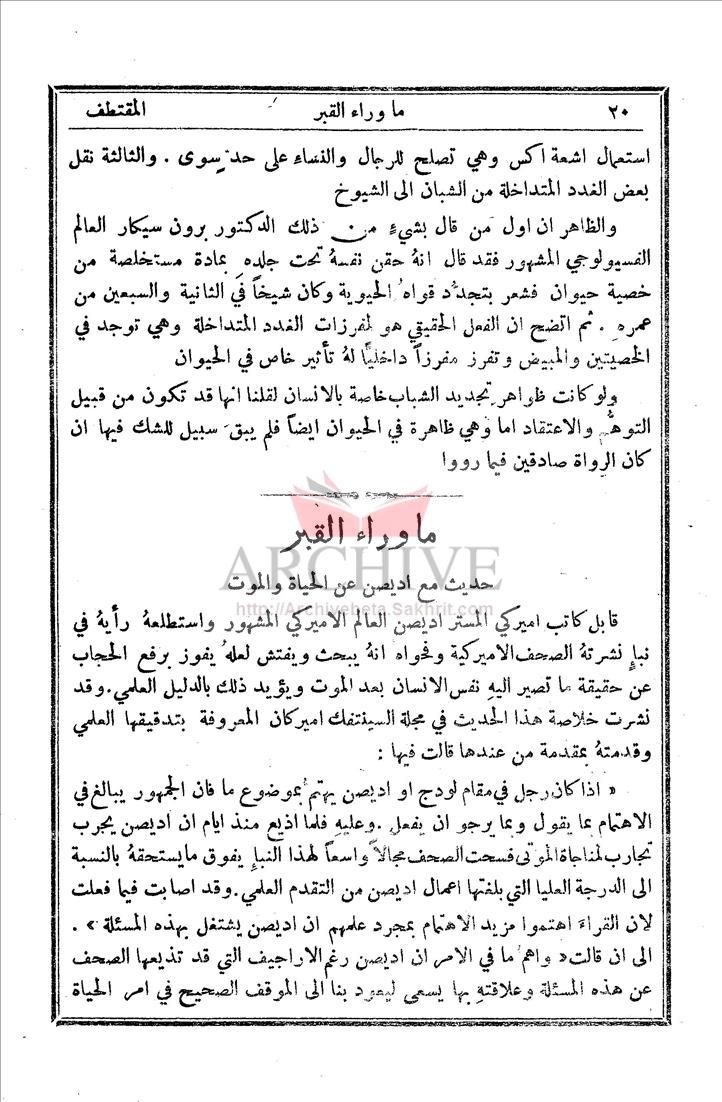 ٢٠ ما وراء القبر المقتطف
استعمال اشعة اكس وهي تصلح للرجال والنساء على حد سوى . والثالثة نقل
بعض الغدد المتداخلة من الشبان الى الشيوخ
والظاهر ان اول من قال بشيءٍ من ذلك الدكتور برون سيكار العالم
الفسيولوجي المشهور فقد قال انهُ حقن نفسهُ تحت جلدهِ بمادة مستخلصة من
خصية حيوان فشعر بتجدُّد قواهُ الحيوية وكان شيخاً في الثانية والسبعين من
عمرهِ . ثم اتضح ان الفعل الحقيقي هو لمفرزات الغدد المتداخلة وهي توجد في
الخصيتين والمبيض وتفرز مفرزاً داخليًّا لهُ تأثير خاص في الحيوان
ولو كانت ظواهر تجديد الشباب خاصة بالانسان لقلنا انها قد تكون من قبيل
التوهُّم والاعتقاد اما وهي ظاهرة في الحيوان ايضاً فلم يبقَ سبيل للشك فيها ان
كان الرواة صادقين فيما رووا
ما وراء القبر
ARCHIVE
حديث مع اديصن عن الحياة والموت
http://Archivebeta.Sakhrit.com
قابل كاتب اميركي المستر اديصن العالم الاميركي المشهور واستطلعهُ رأيهُ في
نبإٍ نشرتهُ الصحف الاميركية وفحواه انهُ يبحث ويفتش لعلهُ يفوز برفع الحجاب
عن حقيقة ما تصير اليهِ نفس الانسان بعد الموت ويؤيد ذلك بالدليل العلمي . وقد
نشرت خلاصة هذا الحديث في مجلة السينتفك اميركان المعروفة بتدقيقها العلمي
وقدمتهُ بمقدمة من عندها قالت فيها :
« اذا كان رجل في مقام لودج او اديصن يهتم بموضوع ما فان الجمهور يبالغ في
الاهتمام بما يقول وبما يرجو ان يفعل . وعليهِ فلما اذيع منذ ايام ان اديصن يجرب
تجارب لمناجاة الموتى فسحت الصحف مجالاً واسعاً لهذا النبإِ يفوق ما يستحقهُ بالنسبة
الى الدرجة العليا التي بلغتها اعمال اديصن من التقدم العلمي . وقد اصابت فيما فعلت
لان القراءَ اهتموا مزيد الاهتمام بمجرد علمهم ان اديصن يشتغل بهذه المسئلة » .
الى ان قالت « واهم ما في الامر ان اديصن رغم الاراجيف التي قد تذيعها الصحف
عن هذه المسئلة وعلاقتهِ بها يسعى ليعود بنا الى الموقف الصحيح في امر الحياة